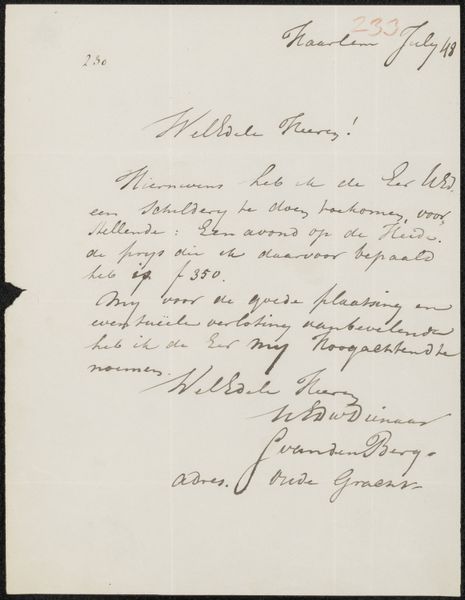 233
Haarlem July 48
230
WelEdele Heeren!
Hiernevens heb ik de Eer UEd.
een Schildery te doen toekomen, voor,
stellende: Een avond op de Heide.
de prys die ik daarvoor bepaald
heb is f 350.
My voor de goede plaatsing en
eventuëele verloting aanbevelende
heb ik de Eer my Hoogachtend te
noemen.
WelEdele Heeren
UEdw Dienaar
vandenBerg.
adres. Oude Gracht